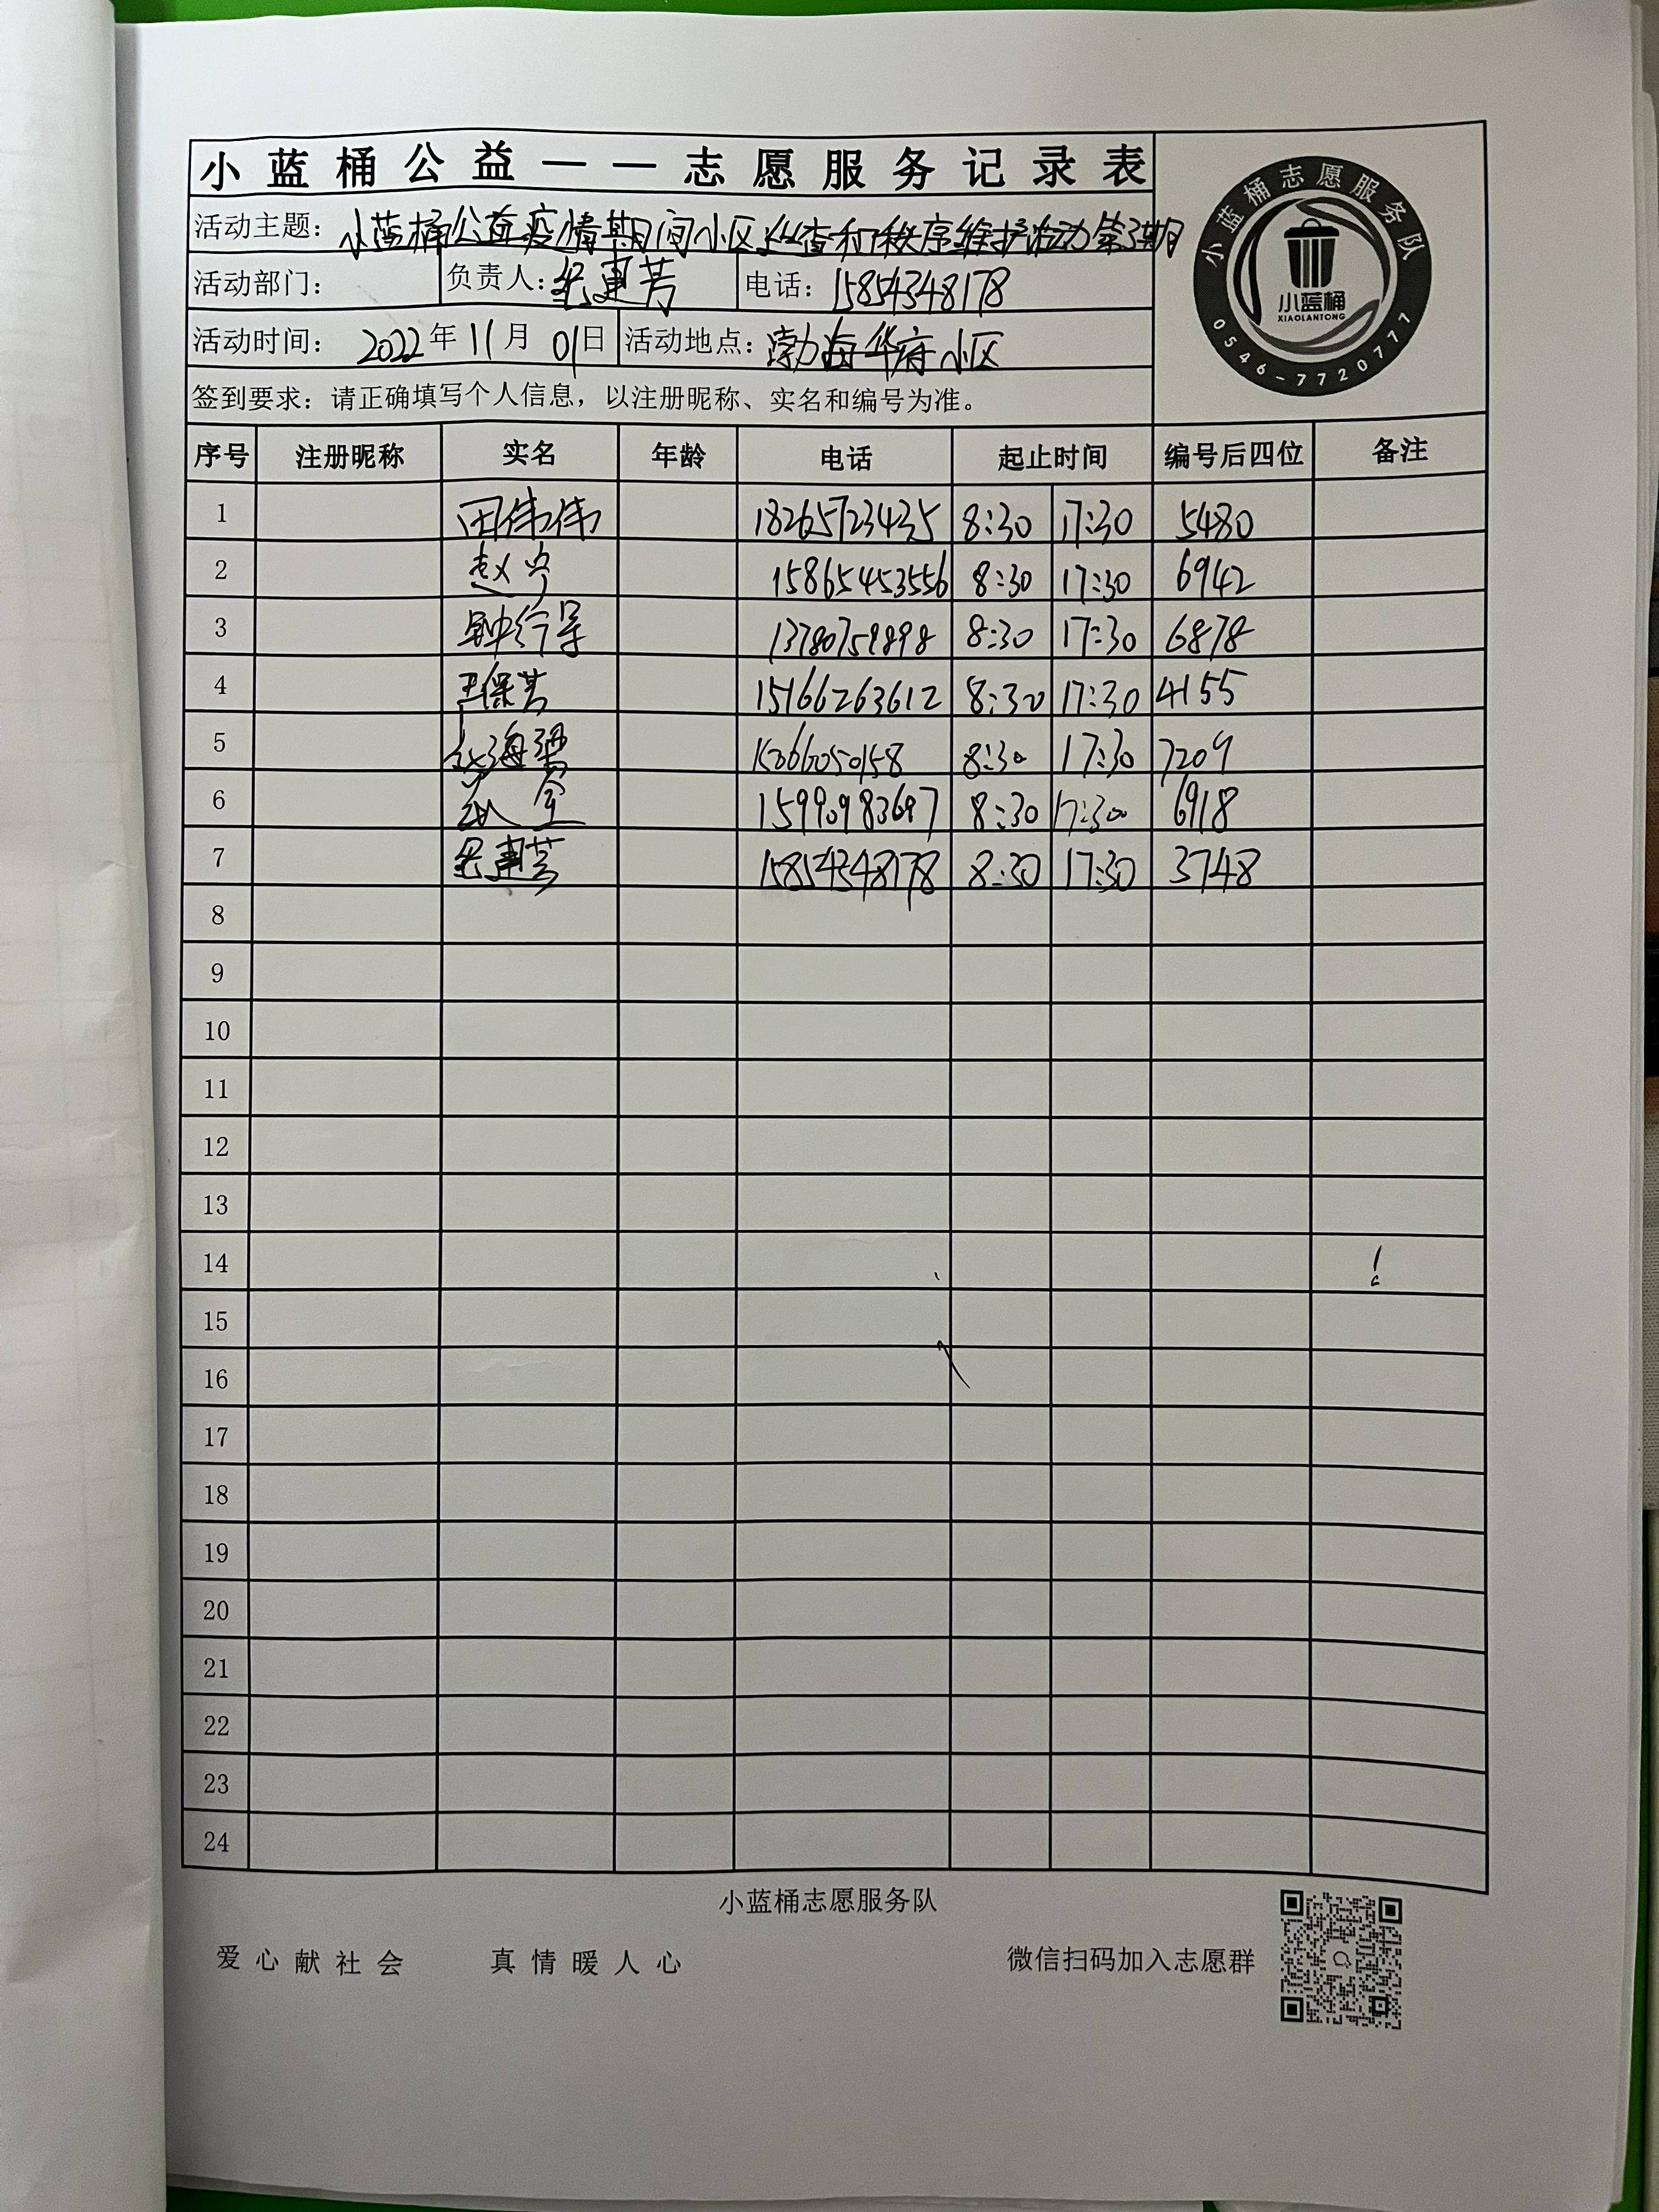 小蓝桶公益——志愿服务记录表
活动主题： 小蓝桶公益疫情期间小区巡查和秩序维护活动第3期
活动部门： 负责人： 建芳 电话： 15854348178
活动时间： 2022年11月01日 活动地点： 渤海华府小区
签到要求：请正确填写个人信息，以注册昵称、实名和编号为准。
小蓝桶志愿服务队
小蓝桶
XIAOLANTONG
0546-7720777
序号 注册昵称 实名 年龄 电话 起止时间 编号后四位 备注
1 田伟伟 18265723435 8:30 17:30 5480
2 赵宁 15865453556 8:30 17:30 6942
3 13780759898 8:30 17:30 6878
4 王保芳 15166263612 8:30 17:30 4155
5 8:30 17:30 7209
6 15990983697 8:30 17:30 6918
7 建芳 15854348178 8:30 17:30 3748
8
9
10
11
12
13
14
15
16
17
18
19
20
21
22
23
24
小蓝桶志愿服务队
爱心献社会 真情暖人心 微信扫码加入志愿群